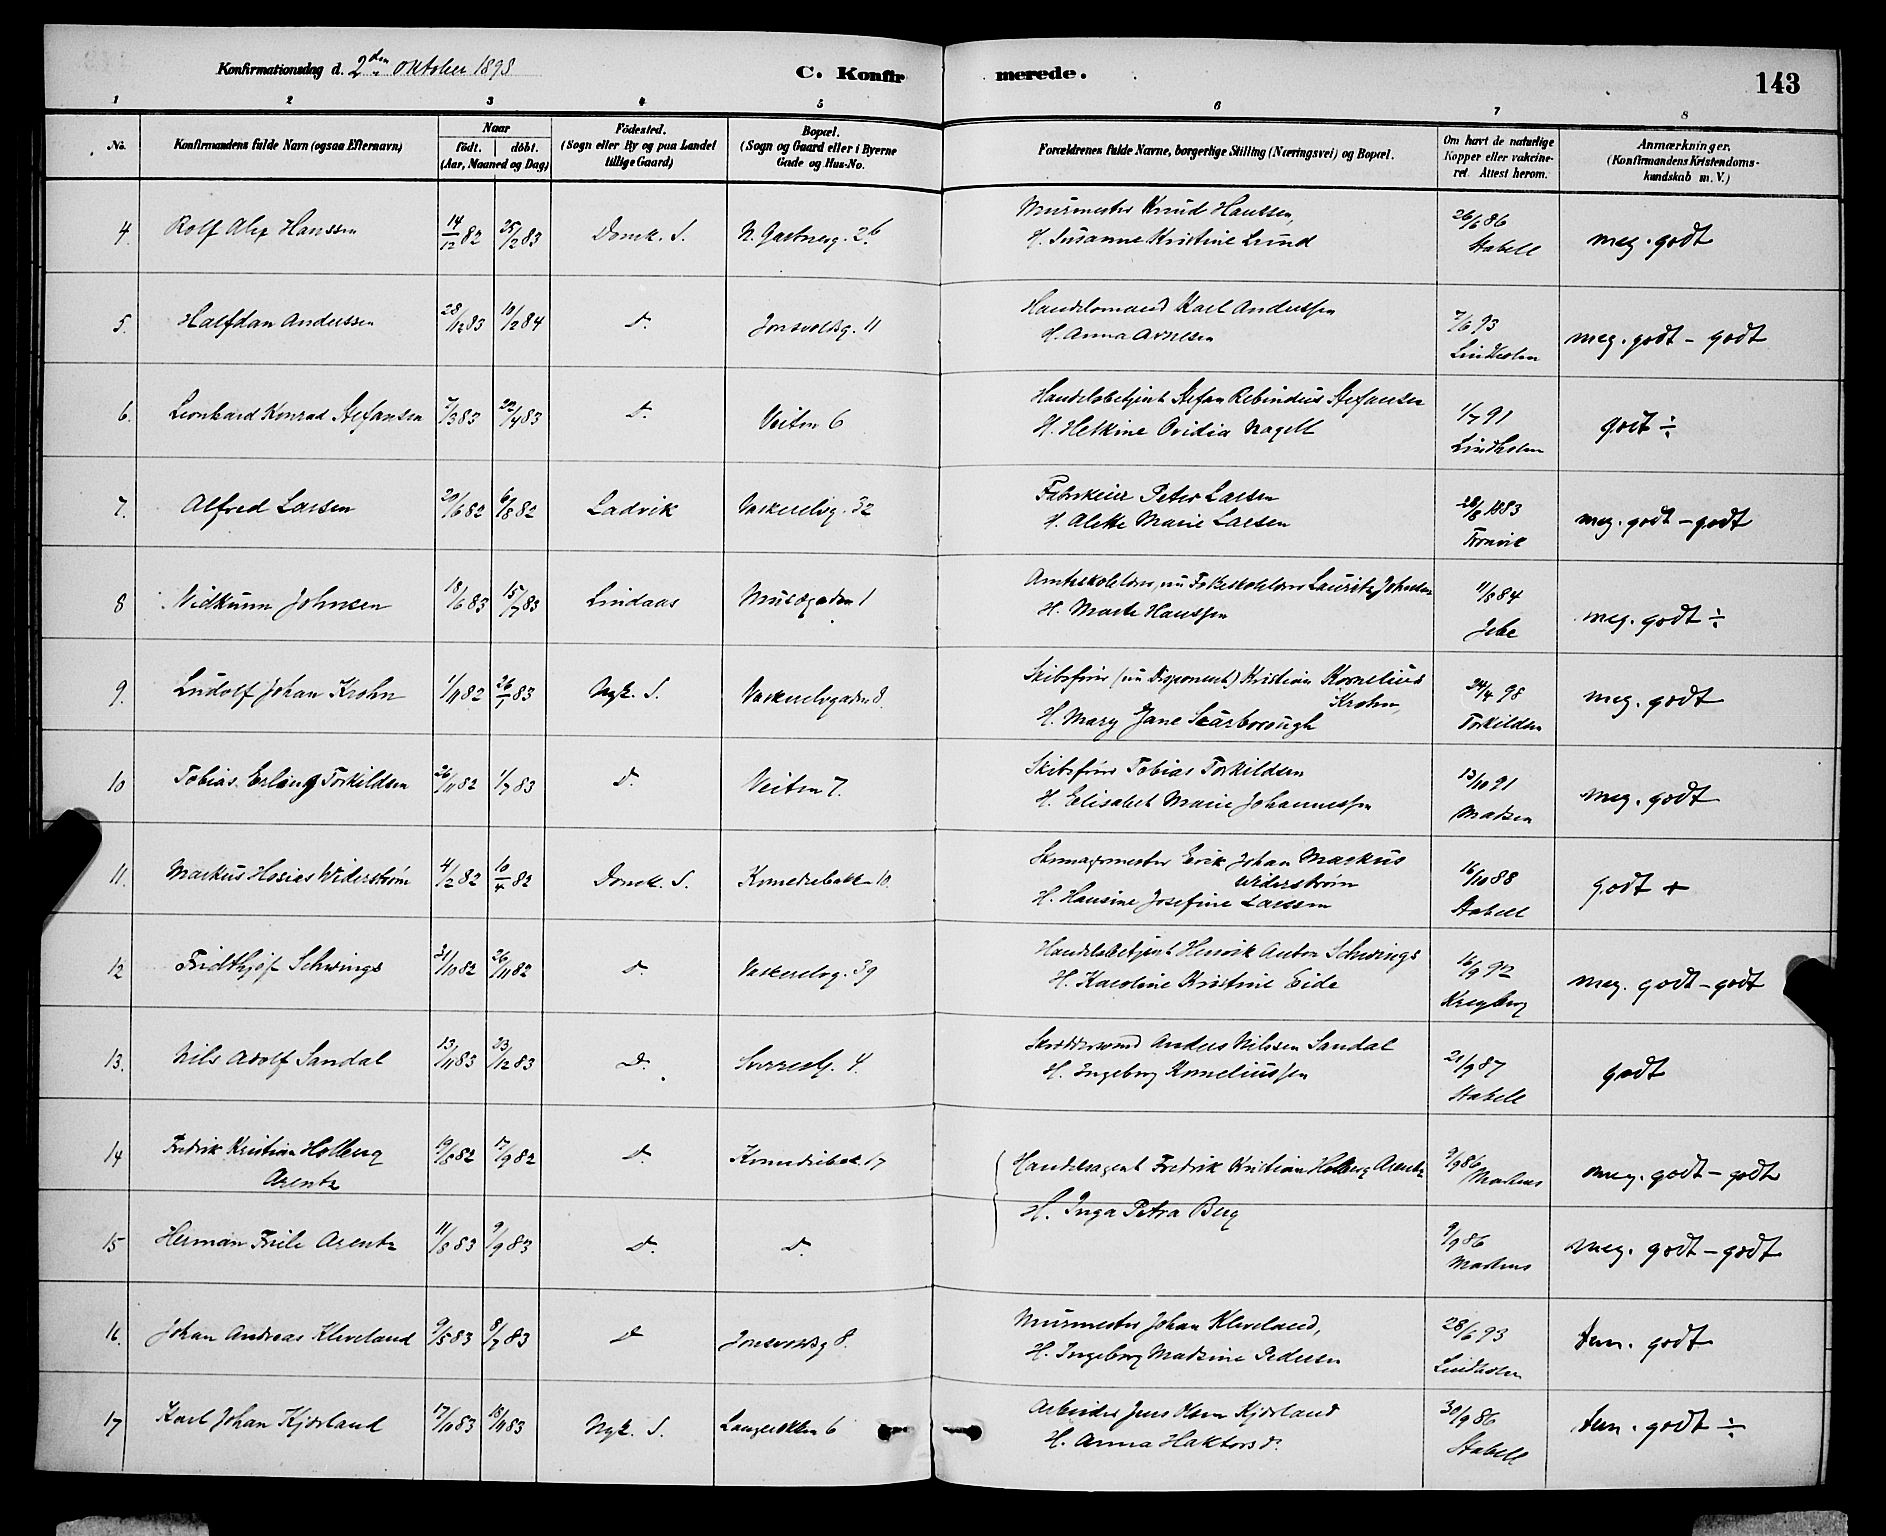 Konfirmationsdag d. 2den oktober 1898 C. Konfirmerede. 143
1 2 3 4 5 6 7 8
No. Konfirmandens fulde Navn (ogsaa Efternavn) Naar födt. döbt. (Aar, Maaned og Dag) Födested. (Sogn eller By og paa Landet tillige Gaard) Bopæl. (Sogn og Gaard eller i Byerne Gade og Hus-No. Forældrenes fulde Navne, borgerlige Stilling (Næringsvei) og Bopæl. Om havt de naturlige Kopper eller vakcineret. Attest herom. Anmærkninger. (Konfirmandens Kristendomskundskab m. V.)
4. Rolf Alex Hanssen 14/12 82 25/2 83 Domk. S. N. Gartnerg. 26 Murmester Knud Hanssen, 26/6 86
H. Susanne Kristine Lund Stabell meg. godt
5. Halfdan Anderssen 28/12 83 10/2 84 D. Jonsvoldsg. 11 Handelsmand Karl Anderssen 7/6 93
H. Anna Arnesen Lindholm meg. godt - godt
6. Leonhard Konrad Stefansen 7/3 83 22/4 83 D. Veiten 6 Handelsbetjent Stefan Rebindius Stefansen 1/7 91
H. Helkine Ovidia Nagell Lindholm godt ÷
7. Alfred Larsen 20/6 82 6/8 82 Ladvik Vaskerelvg. 32 Fabrikeier Peter Larsen 28/8 1883
H. Alette Marie Larsen Tronvik meg. godt - godt
8 Vidkunn Johnsen 18/6 83 15/7 83 Lindaas Musègaden 1 Amtskolelærer, nu Folkeskolelærer Lauritz Johnsen 11/8 84
H. Marte Hanssen Jebe meg. godt ÷
9. Ludolf Johan Krohn 1/11 82 26/1 83 Nyk. S. Vaskerelvgaden 8. Skibsfører (nu Disponent) Kristian Kornelius Krohn, 24/4 98
H. Mary Jane Scarborough Torkildsen meg. godt
10 Tobias Erling Torkildsen 26/11 82 1/7 83 D. Veiten 7. Skibsfører Tobias Torkildsen 13/10 91
H. Elisabet Marie Johannessen Madsen meg. godt
11. Markus Hosias Widerstrøm 4/2 82 10/4 82 Domk. S. Komediebakk. 10. Skomagermester Erik Johan Markus Widerstrøm 16/10 88
H. Hansine Josefine Larsen Stabell godt +
12 Fridthjof Schwings 31/10 82 26/11 82 D. Vaskerelvg. 39 Handelsbetjent Henrik Anton Schwings 16/9 92
H. Karoline Kristine Eide Kreyberg meg. godt - godt
13. Nils Adolf Sandal 13/11 83 23/12 83 D. Sverresg. 4. Skræddersvend Anders Nilssen Sandal 21/9 87
H. Ingeborg Korneliussen Stabell godt
14 Fredrik Kristian Holberg 19/8 82 17/9 82 D. Komediebak. 17 Handelsagent Fredrik Kristian Holberg Arentz 9/9 86
Arentz Martens meg. godt - godt
H. Inga Petra Berg
15 Herman Friele Arentz 11/8 83 9/9 83 D. D. 9/9 86
Martens meg. godt - godt
16. Johan Andreas Kleveland 9/5 83 8/7 83 D Jonsvoldsg 8. Murmester Johan Kleveland, 28/6 93
H. Ingeborg Madsine Pedersen Lindholm tem. godt
17 Karl Johan Kjørland 17/10 83 18/11 83 Nyk. S. Langeskolten 6 Arbeider Jens Olsen Kjørland 30/9 86
H. Anna Haktorsd. Stabell tem. godt ÷